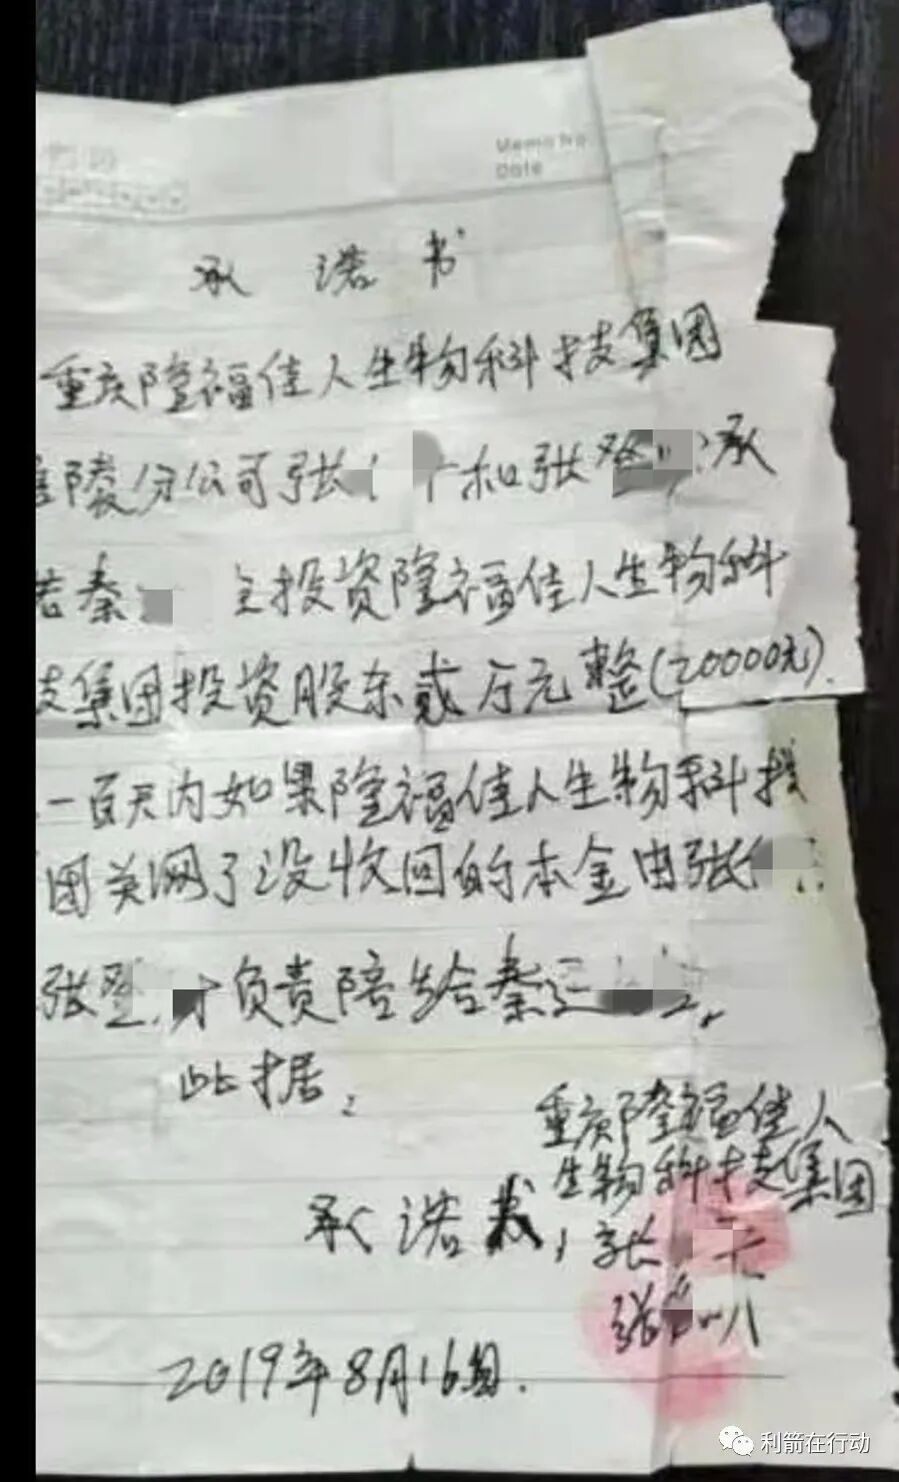 Memo No.
Date
承 诺 书
重庆隆福佳人生物科技集团
涪陵分公司张 和张 承
诺秦 投资隆福佳人生物科
技集团投资股东贰万元整(20000元).
一百天内如果隆福佳人生物科技
团关网了没收回的本金由张
张 负责陪给秦
此据.
重庆隆福佳人
生物科技集团
承诺书,
张
张
2019年8月16日.
利箭在行动